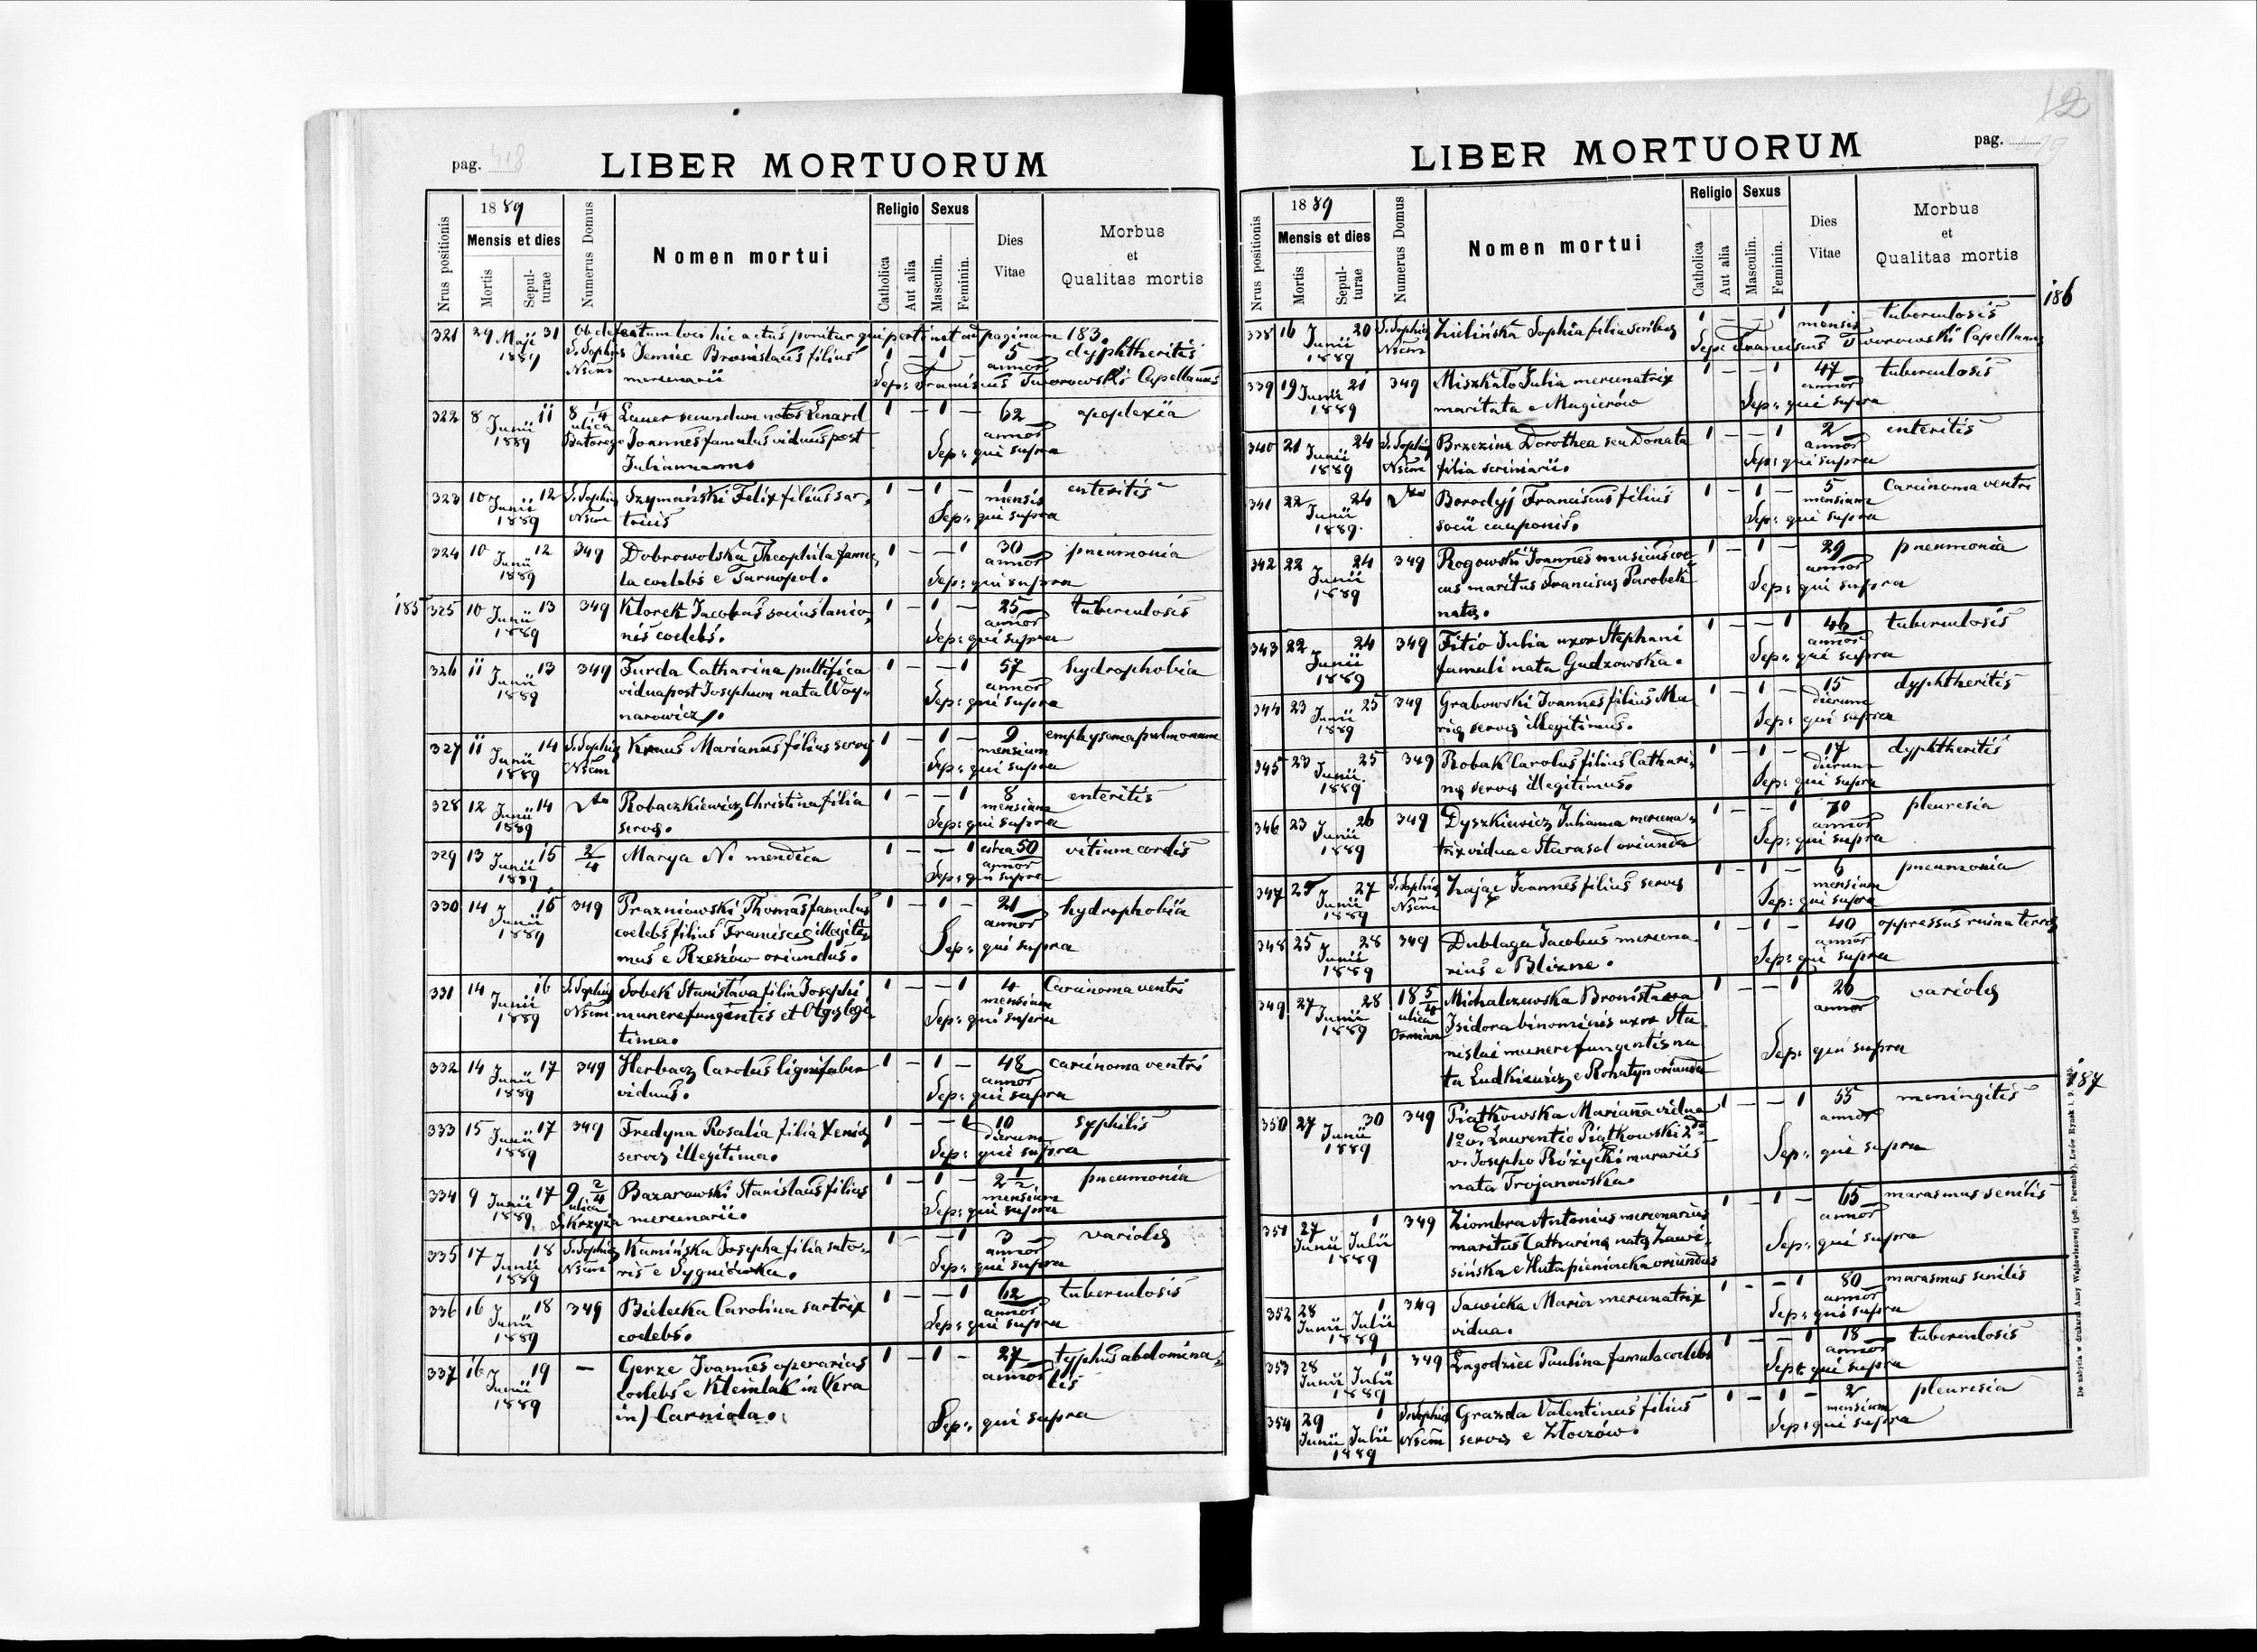 pag. 418
LIBER MORTUORUM
Nrus positionis
1889
Mensis et dies
Mortis
Sepul-
turae
Numerus Domus
Nomen mortui
Religio
Catholica
Aut alia
Sexus
Masculin.
Feminin.
Dies
Vitae
Morbus
et
Qualitas mortis
321 29 Maji 31 Ob defectum loci hic actus ponitur qui pertinet ad paginam 183.
1889 S. Sophia Jemiec Bronislaus filius 1 — 1 — 5 dyphtheritis
Nscm mercenarii annor
Sep: Franciscus Tworowski Capellanus
322 8 Junii 11 8 1/4 Lauer secundum notos Lenard 1 — 1 — 62 apoplexia
1889 ulica Batorego Joannes famulus viduus post annor
Juliannam Sep: qui supra
323 10 Junii 12 S. Sophia Szymański Felix filius sar- 1 — 1 — 1 enteritis
1889 Nscm tricis mensis
Sep: qui supra
324 10 Junii 12 349 Dobrowolska Theophila famu- 1 — — 1 30 pneumonia
1889 la coelebs e Tarnopol. annor
Sep: qui supra
185
325 10 Junii 13 349 Klorek Jacobus socius lanio- 1 — 1 — 25 tuberculosis
1889 nis coelebs. annor
Sep: qui supra
326 11 Junii 13 349 Furda Catharina pultifica 1 — — 1 57 hydrophobia
1889 vidua post Josephum nata Woy- annor
narowicz. Sep: qui supra
327 11 Junii 14 S. Sophia Kraus Marianus filius servę 1 — 1 — 9 emphysema pulmonum
1889 Nscm mensium
Sep: qui supra
328 12 Junii 14 dto Robaczkiewicz Christina filia 1 — — 1 8 enteritis
1889 servę. mensium
Sep: qui supra
329 13 Junii 15 2/4 Marya N. mendica 1 — — 1 circa 50 vitium cordis
1889 annor
Sep: qui supra
330 14 Junii 15 349 Prazniowski Thomas famulus 1 — 1 — 21 hydrophobia
1889 coelebs filius Franciscę illegiti- annor
mus e Rzeszów oriundus. Sep: qui supra
331 14 Junii 16 S. Sophia Sobek Stanisłava filia Josephi 1 — — 1 4 Carcinoma ventri
1889 Nscm munere fungentis et Olgę legi- mensium
tima. Sep: qui supra
332 14 Junii 17 349 Herbacz Carolus lignifaber 1 — 1 — 48 carcinoma ventri
1889 viduus. annor
Sep: qui supra
333 15 Junii 17 349 Fredyna Rosalia filia Xenię 1 — — 1 10 syphilis
1889 servę illegitima. dierum
Sep: qui supra
334 9 Junii 17 9 2/4 Bazarowski Stanislaus filius 1 — 1 — 2 1/2 pneumonia
1889. ulica S. Krzyża mercenarii. mensium
Sep: qui supra
335 17 Junii 18 S. Sophia Kamińska Josepha filia suto- 1 — — 1 3 variolę
1889 Nscm ris e Sygniówka. annor
Sep: qui supra
336 16 Junii 18 349 Bielecka Carolina sartrix 1 — — 1 62 tuberculosis
1889 coelebs. annor
Sep: qui supra
337 16 Junii 19 — Gerze Joannes operarius 1 — 1 — 27 typhus abdomina-
1889 coelebs e Kleinlak in (Kra annor lis
in) Carniola. Sep: qui supra
12
pag.
LIBER MORTUORUM
Nrus positionis
1889
Mensis et dies
Mortis
Sepul-
turae
Numerus Domus
Nomen mortui
Religio
Catholica
Aut alia
Sexus
Masculin.
Feminin.
Dies
Vitae
Morbus
et
Qualitas mortis
186
338 16 Junii 20 S. Sophia Zielińska Sophia filia scribę 1 — — 1 1 tuberculosis
1889 Nscm mensis
Sep: Franciscus Tworowski Capellanus
339 19 Junii 21 349 Miszkało Julia mercenatrix 1 — — 1 47 tuberculosis
1889 maritata e Magierów annor
Sep: qui supra
340 21 Junii 24 S. Sophia Brzezina Dorothea seu Donata 1 — — 1 2 enteritis
1889 Nscm filia scriniarii. annor
Sep: qui supra
341 22 Junii 24 dto Borodyj Franciscus filius 1 — 1 — 5 Carcinoma ventri
1889. socii cauponis. mensium
Sep: qui supra
342 22 Junii 24 349 Rogowski Joannes musicus coe- 1 — 1 — 29 pneumonia
1889 cus maritus Franciscę Parobek annor
natę. Sep: qui supra
343 22 Junii 24 349 Fitio Julia uxor Stephani 1 — — 1 46 tuberculosis
1889 famuli nata Gudzowska. annor
Sep: qui supra
344 23 Junii 25 349 Grabowski Joannes filius Ma- 1 — 1 — 15 dyphtheritis
1889 rię servę illegitimus. dierum
Sep: qui supra
345 23 Junii 25 349 Robak Carolus filius Cathari- 1 — 1 — 17 dyphtheritis
1889 nę servę illegitimus. dierum
Sep: qui supra
346 23 Junii 26 349 Dyszkiewicz Julianna mercena- 1 — — 1 70 pleuresia
1889 trix vidua e Starasol oriunda annor
Sep: qui supra
347 25 Junii 27 S. Sophia Zając Joannes filius servę 1 — 1 — 6 pneumonia
1889 Nscm mensium
Sep: qui supra
348 25 Junii 28 349 Dublaga Jacobus mercena- 1 — 1 — 40 oppressus ruina terrę
1889 rius e Blizne. annor
Sep: qui supra
349 27 Junii 28 18 5/4 Michalczewska Bronisława 1 — — 1 26 variolę
1889 ulica Isidora binominis uxor Sta- annor
nislai munere fungentis na-
ta Ludkiewicz e Rohatyn oriunda Sep: qui supra
187
350 27 Junii 30 349 Piatkowska Marianna vidua 1 — — 1 55 meningitis
1889 1o v. Laurentio Piatkowski 2do annor
v. Josepho Różycki murarii Sep: qui supra
nata Trojanowska.
351 27 Junii 1 Julii 349 Ziombra Antonius mercenarius 1 — 1 — 65 marasmus senilis
1889 maritus Catharinę natę Zawi- annor
sińska e Huta pieniacka oriundus Sep: qui supra
352 28 Junii 1 Julii 349 Sawicka Maria mercenatrix 1 — — 1 80 marasmus senilis
1889 vidua. annor
Sep: qui supra
353 28 Junii 1 Julii 349 Łagodziec Paulina famula coelebs 1 — — 1 18 tuberculosis
1889 annor
Sep: qui supra
354 29 Junii 1 Julii S. Sophia Grazda Valentinus filius 1 — 1 — 2 pleuresia
1889 Nscm servę e Złoczów. mensium
Sep: qui supra
Do nabycia w drukarni Anny Wajdowiczowej (pdt. Peremby), Lwów Rynek l. 9.